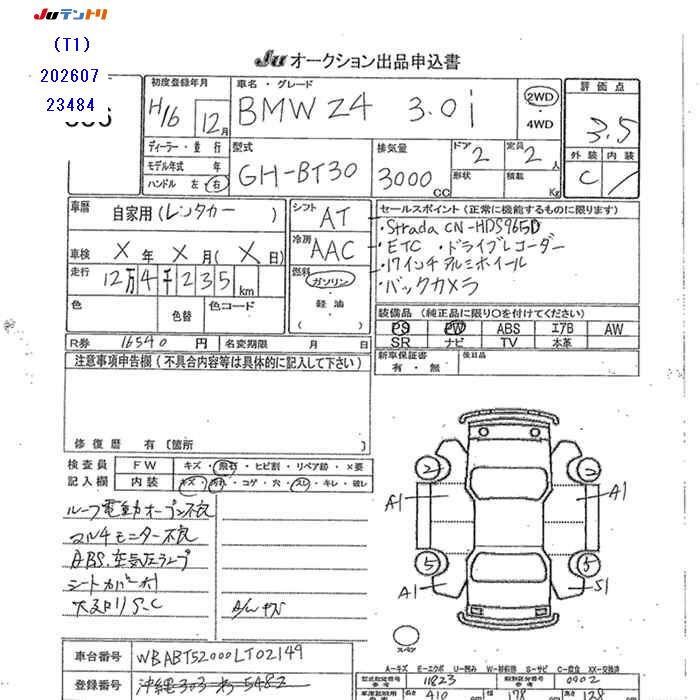 Juテントリ
(T1)
202607
23484
Ju オークション出品申込書
初度登録年月
H16 12月
車名・グレード
BMW Z4 3.0i
2WD
4WD
評価点
3.5
外装 内装
C
ディーラー・並行
モデル年式 年
ハンドル 左 右
型式
GH-BT30
排気量
3000 CC
ドア 2
形状
定員 2 人
積載 Kg
車歴
自家用(レンタカー )
車検 X 年 X 月(X 日)
走行 12万4千235 km
色
色替
色コード
シフト AT
冷房 AAC
燃料 ガソリン
軽油
セールスポイント(正常に機能するものに限ります)
・Strada CN-HDS965D
・ETC ・ドライブレコーダー
・17インチアルミホイール
・バックカメラ
装備品(純正品に限り○を付けてください)
PS PW ABS エアB AW
SR ナビ TV 本革
R券 16540 円 名変期限 月 日
新車保証書
有・無
後日品
注意事項申告欄(不具合内容等は具体的に記入して下さい)
修復歴 有〔箇所 〕
検査員
記入欄
FW キズ・飛石・ヒビ割・リペア跡・×要
内装 キズ・汚れ・コゲ・穴・スレ・キレ・破レ
ルーフ電動オープン不良
マルチモニター不良
ABS.空気圧ランプ
シートカバー付
A/Wキズ
2 2
A1 A1
5 5
A1 S1
スペア
A-キズ E-エクボ U-凹み W-補修跡 S-サビ C-腐食 XX-交換済
車台番号 WBABT52000LT02149
登録番号 沖縄303 わ5482
型式指定番号 参考 11823
類別区分番号 参考 0902
410 178 128